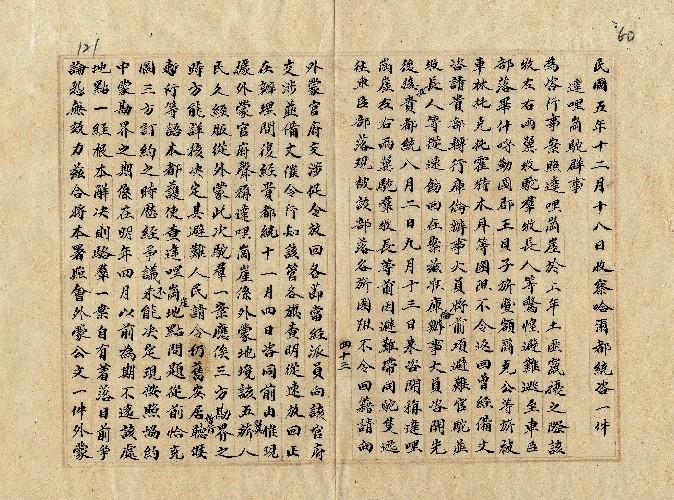 60
民國五年十二月十八日收察哈爾都統咨一件
達哩崗駝群事
為咨行事案照達哩崗崖於上年土匪竄擾之際該
牧左右兩翼牧駝羣牧長人等驚惶避難逃至車臣
部落畢什呼勒圖郡王貝子所屬額爾克公等所被
車林托克托霍猪木丹等團阻不令返回曾經備文
咨請貴部轉行庫倫辦事大員將前項避難官駝並
牧長人等從速飭回在案茲准庫倫辦事大員咨開先
後接貴都統八月二日九月十三日來咨開稱達哩
崗崖左右兩翼駝羣牧長等前因避難帶同駝隻逃
往車臣部落現被該部落各所阻不令回籍請向
四十三
121
外蒙官府交涉從令放回各節當經派員向該官府
交涉並備文催令行知該管各旗查明從速放回正
在辦理間復經貴都統十一月四日咨同前由惟現
據外蒙官府聲稱達哩崗崖係外蒙地境該五旂八
民久經服從外蒙此次駝羣一案應俟三方勘界之
時方能詳核決定其避難人民請令仍舊安居聽候
暫行等語本都護使查達哩崗崖地點問題從前恰克
圖三方訂約之時歷經爭議未能決定現按照協約
中蒙勘界之期係在明年四月以前為期不遠該處
地點一經根本解決則駱羣一案自有著落目前爭
論恐無效力茲合將本署照會外蒙公文一件外蒙